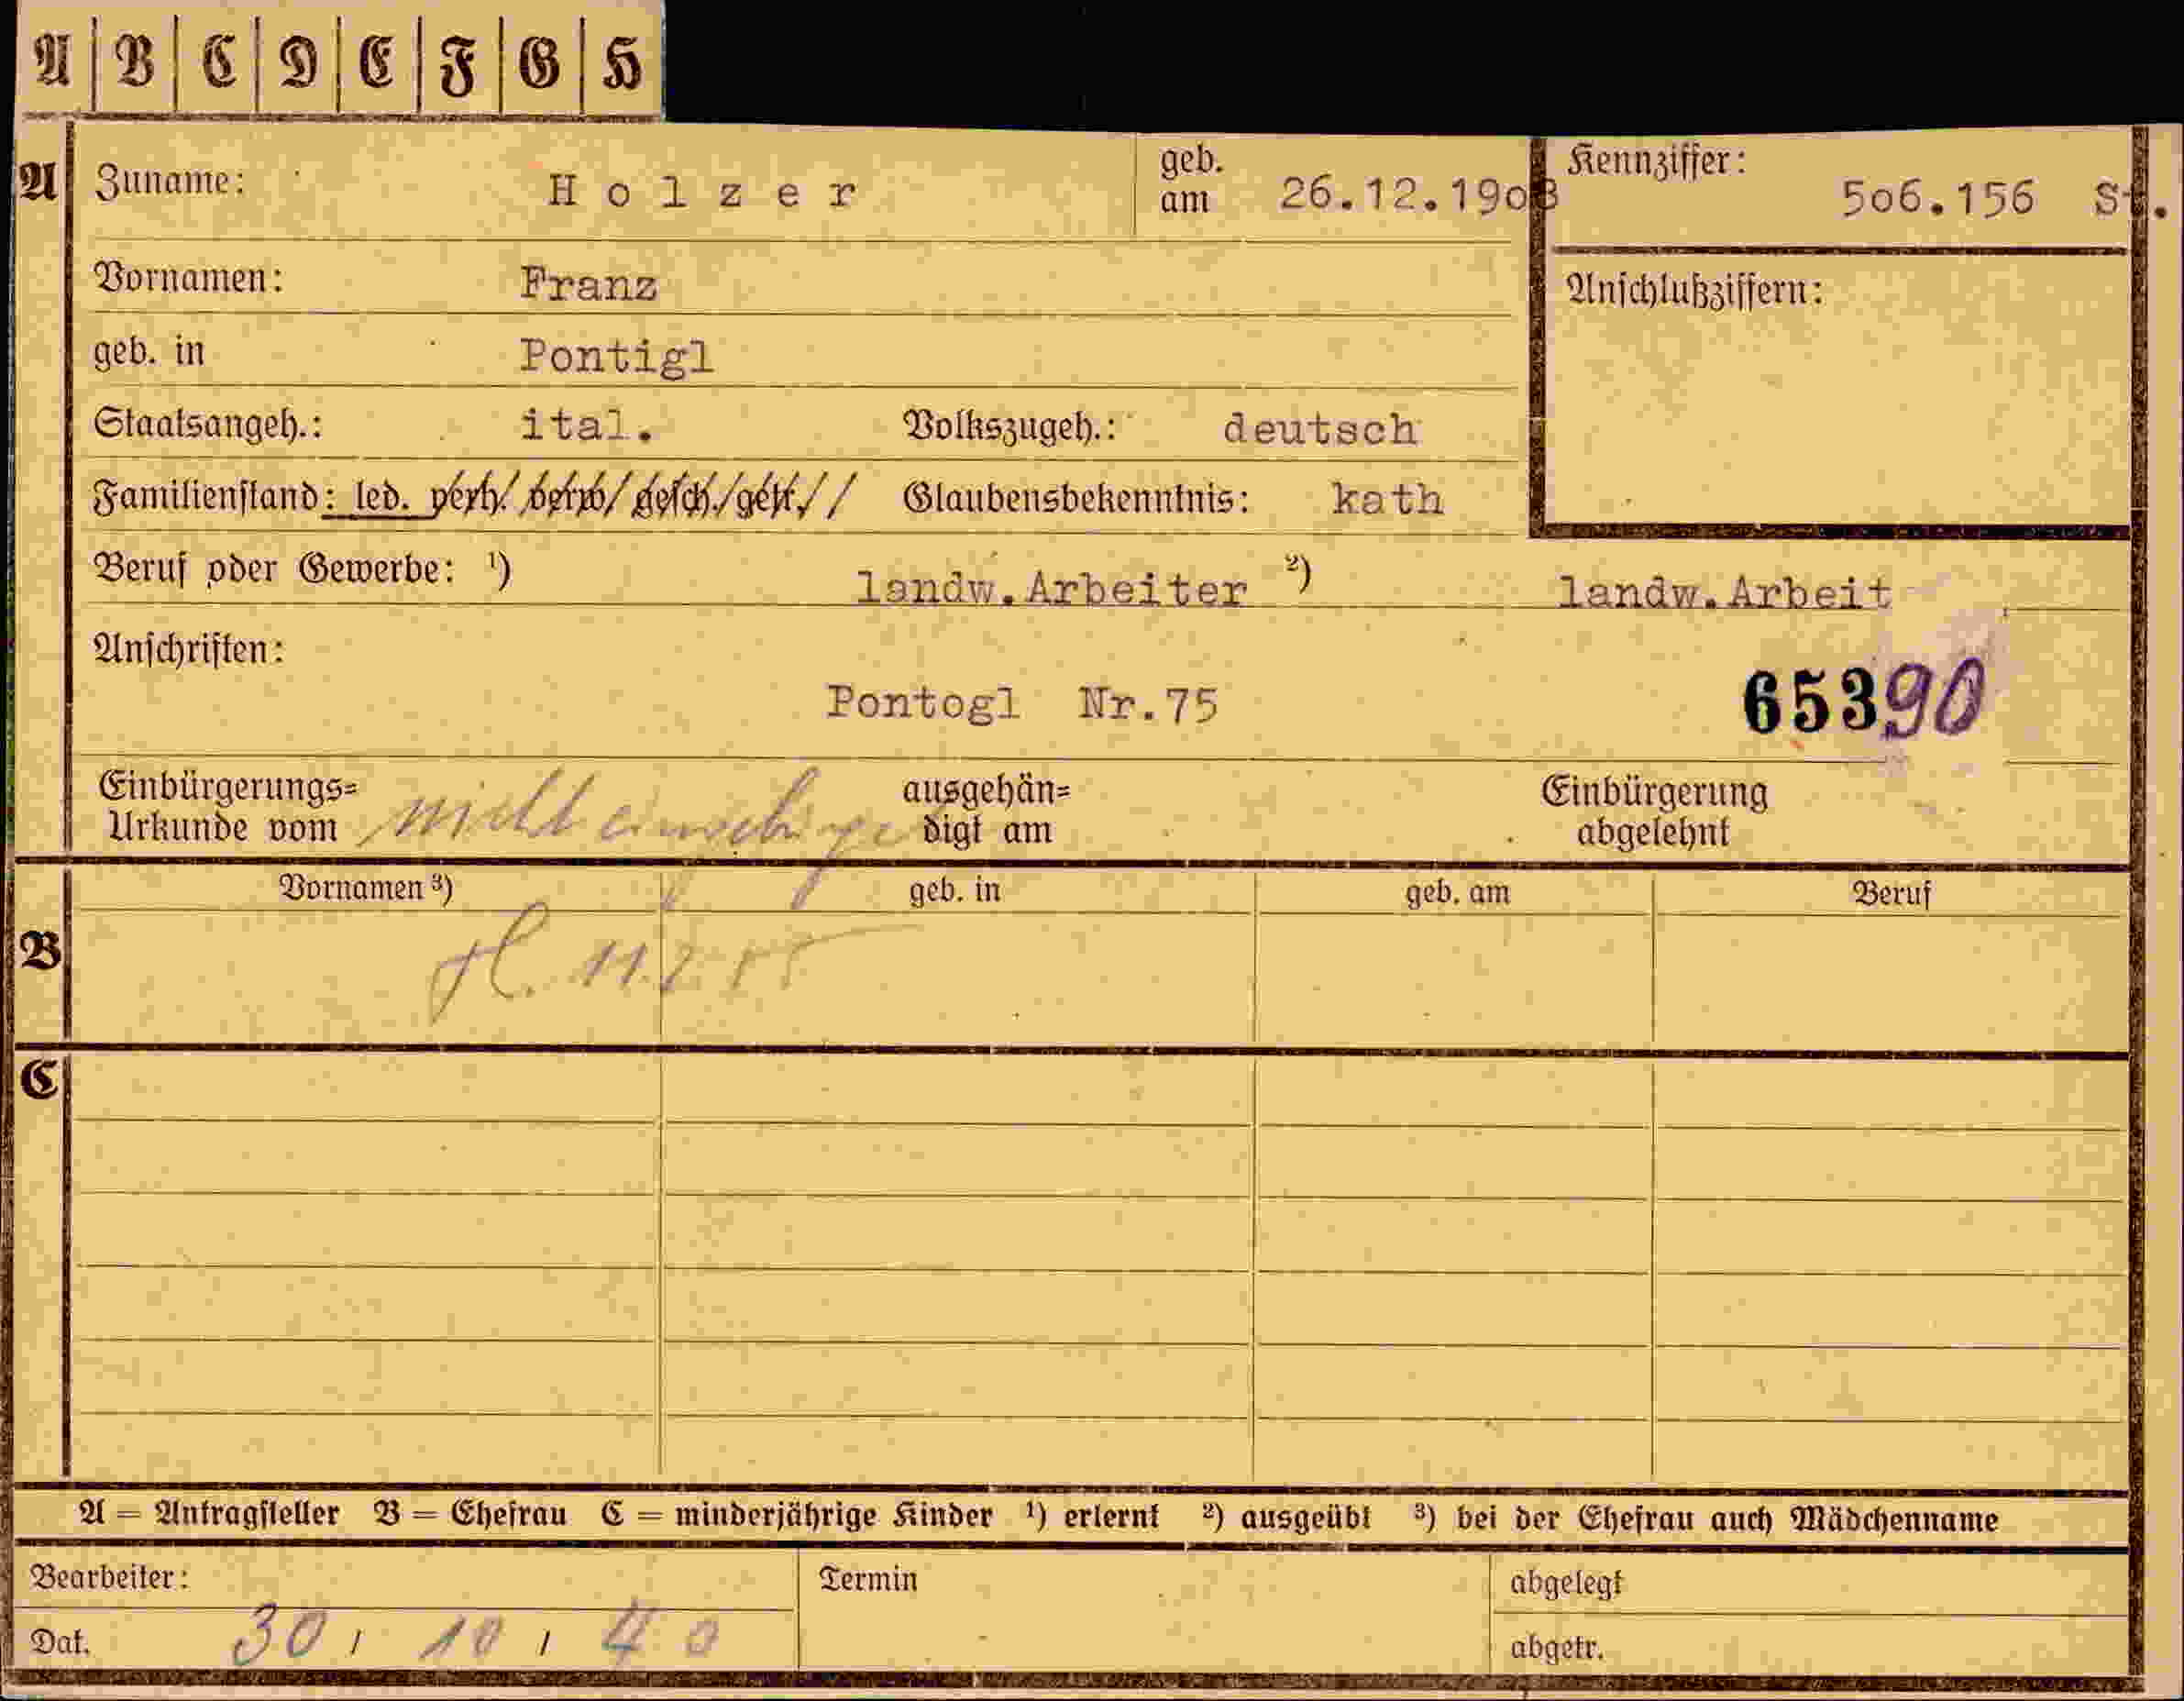 A B C D E F G H
A Zuname: Holzer geb. am 26.12.1908 Kennziffer: 506.156 St.
Vornamen: Franz Anschlußziffern:
geb. in Pontigl
Staatsangeh.: ital. Volkszugeh.: deutsch
Familienstand: led. verh. verw. gesch. getr. Glaubensbekenntnis: kath
Beruf oder Gewerbe: ¹) landw.Arbeiter ²) landw.Arbeit
Anschriften:
Pontogl Nr.75 65390
Einbürgerungs= ausgehän= Einbürgerung
Urkunde vom nicht digt am abgelehnt
Vornamen ³) geb. in geb. am Beruf
B 11.2.
C
A = Antragsteller B = Ehefrau C = minderjährige Kinder ¹) erlernt ²) ausgeübt ³) bei der Ehefrau auch Mädchenname
Bearbeiter: Termin abgelegt
Dat. 30, 10, 40 abgetr.